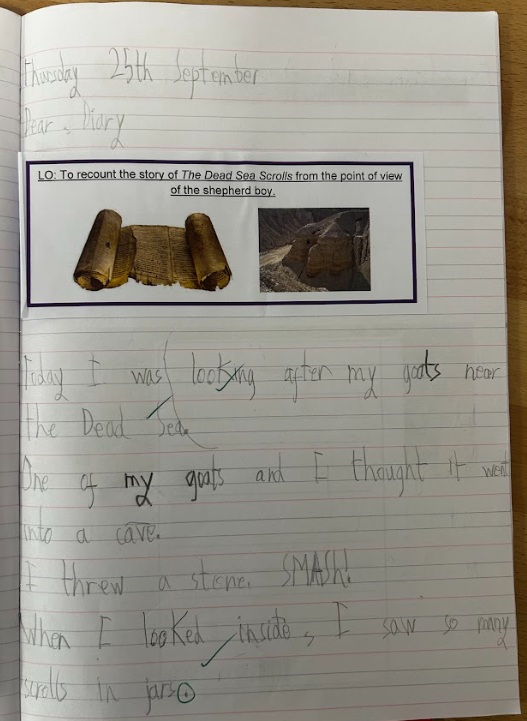 Thursday 25th September
Dear, Diary
LO: To recount the story of The Dead Sea Scrolls from the point of view
of the shepherd boy.
Today I was looking after my goats near
the Dead Sea.
One of my goats and I thought it went
into a cave.
I threw a stone. SMASH!
When I looked inside, I saw so many
scrolls in jars.